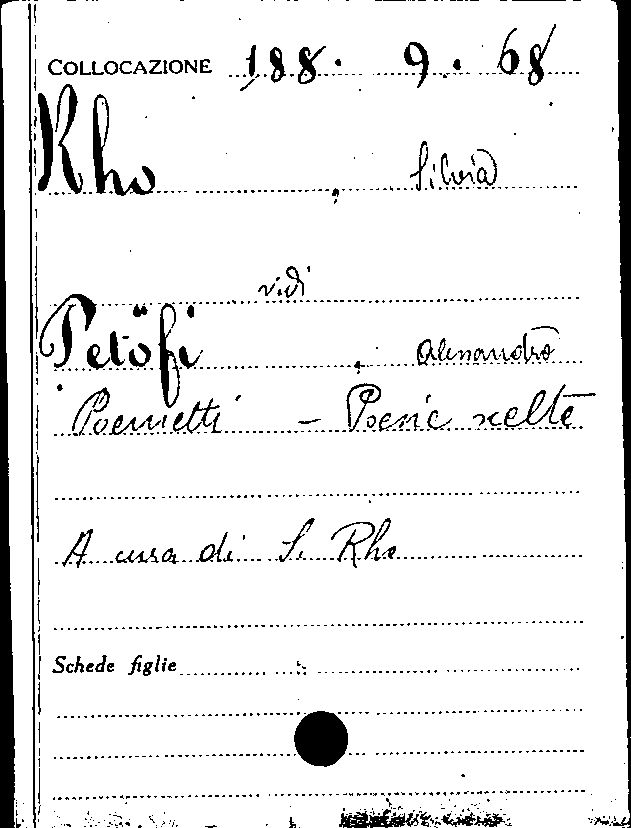 COLLOCAZIONE 188. 9. 68
Rho, Silvia
vidi
Petöfi, Alessandro
Poemetti - Poesie scelte
A cura di S. Rho
Schede figlie